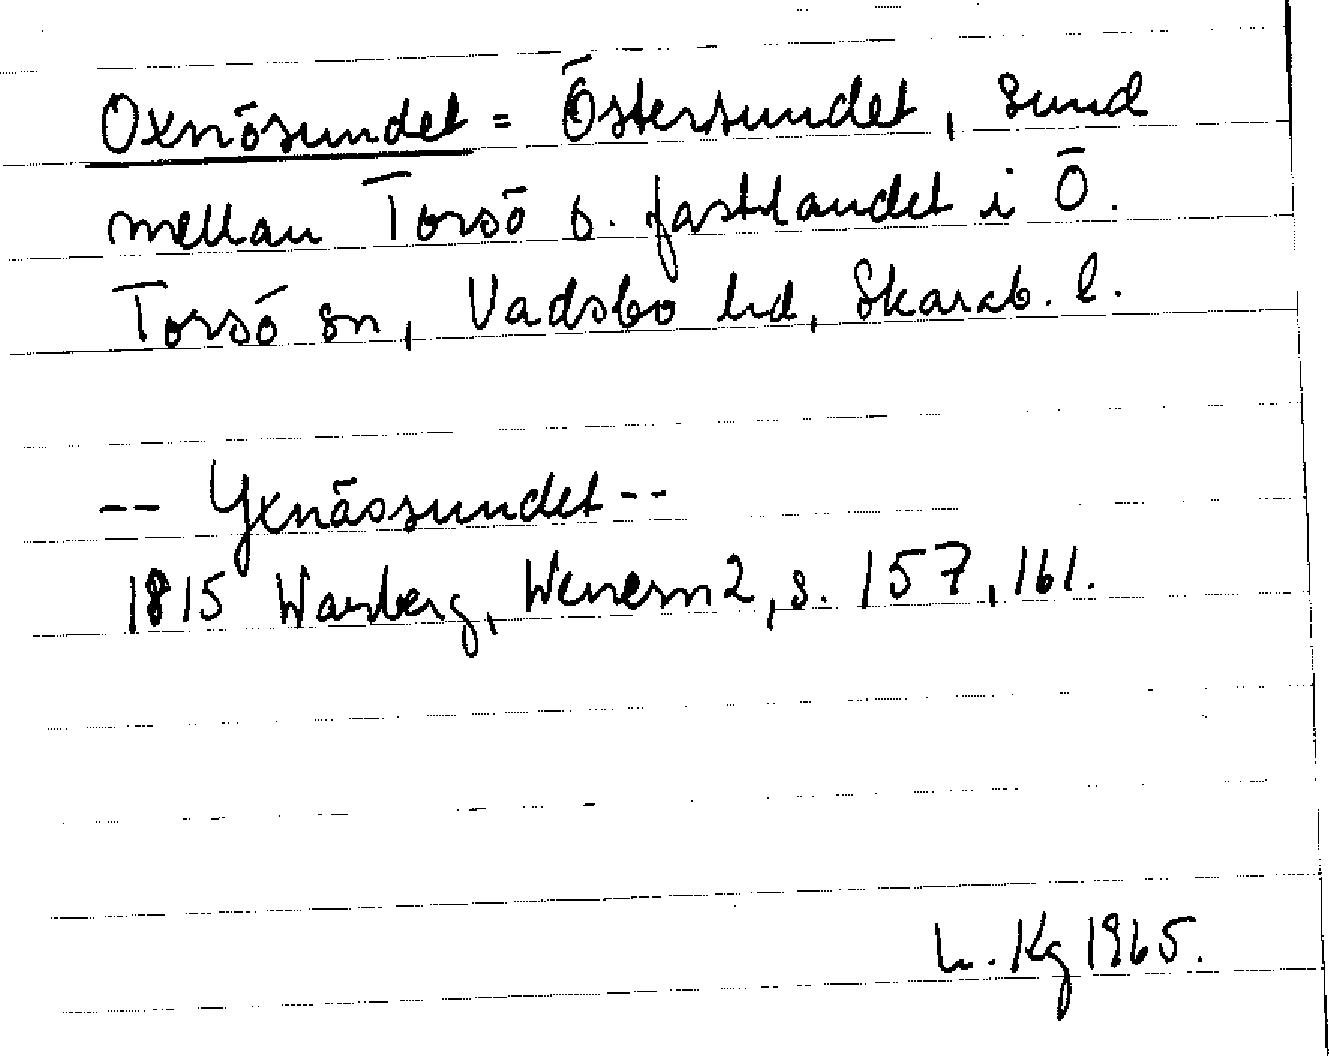 Oxnösundet = Östersundet, sund
mellan Torsö o. fastlandet i Ö.
Torsö sn, Vadsbo hd, Skarab. l.
-- Yxnässundet --
1815 Warberg, Wenern 2, s. 157, 161.
L. Kg 1965.